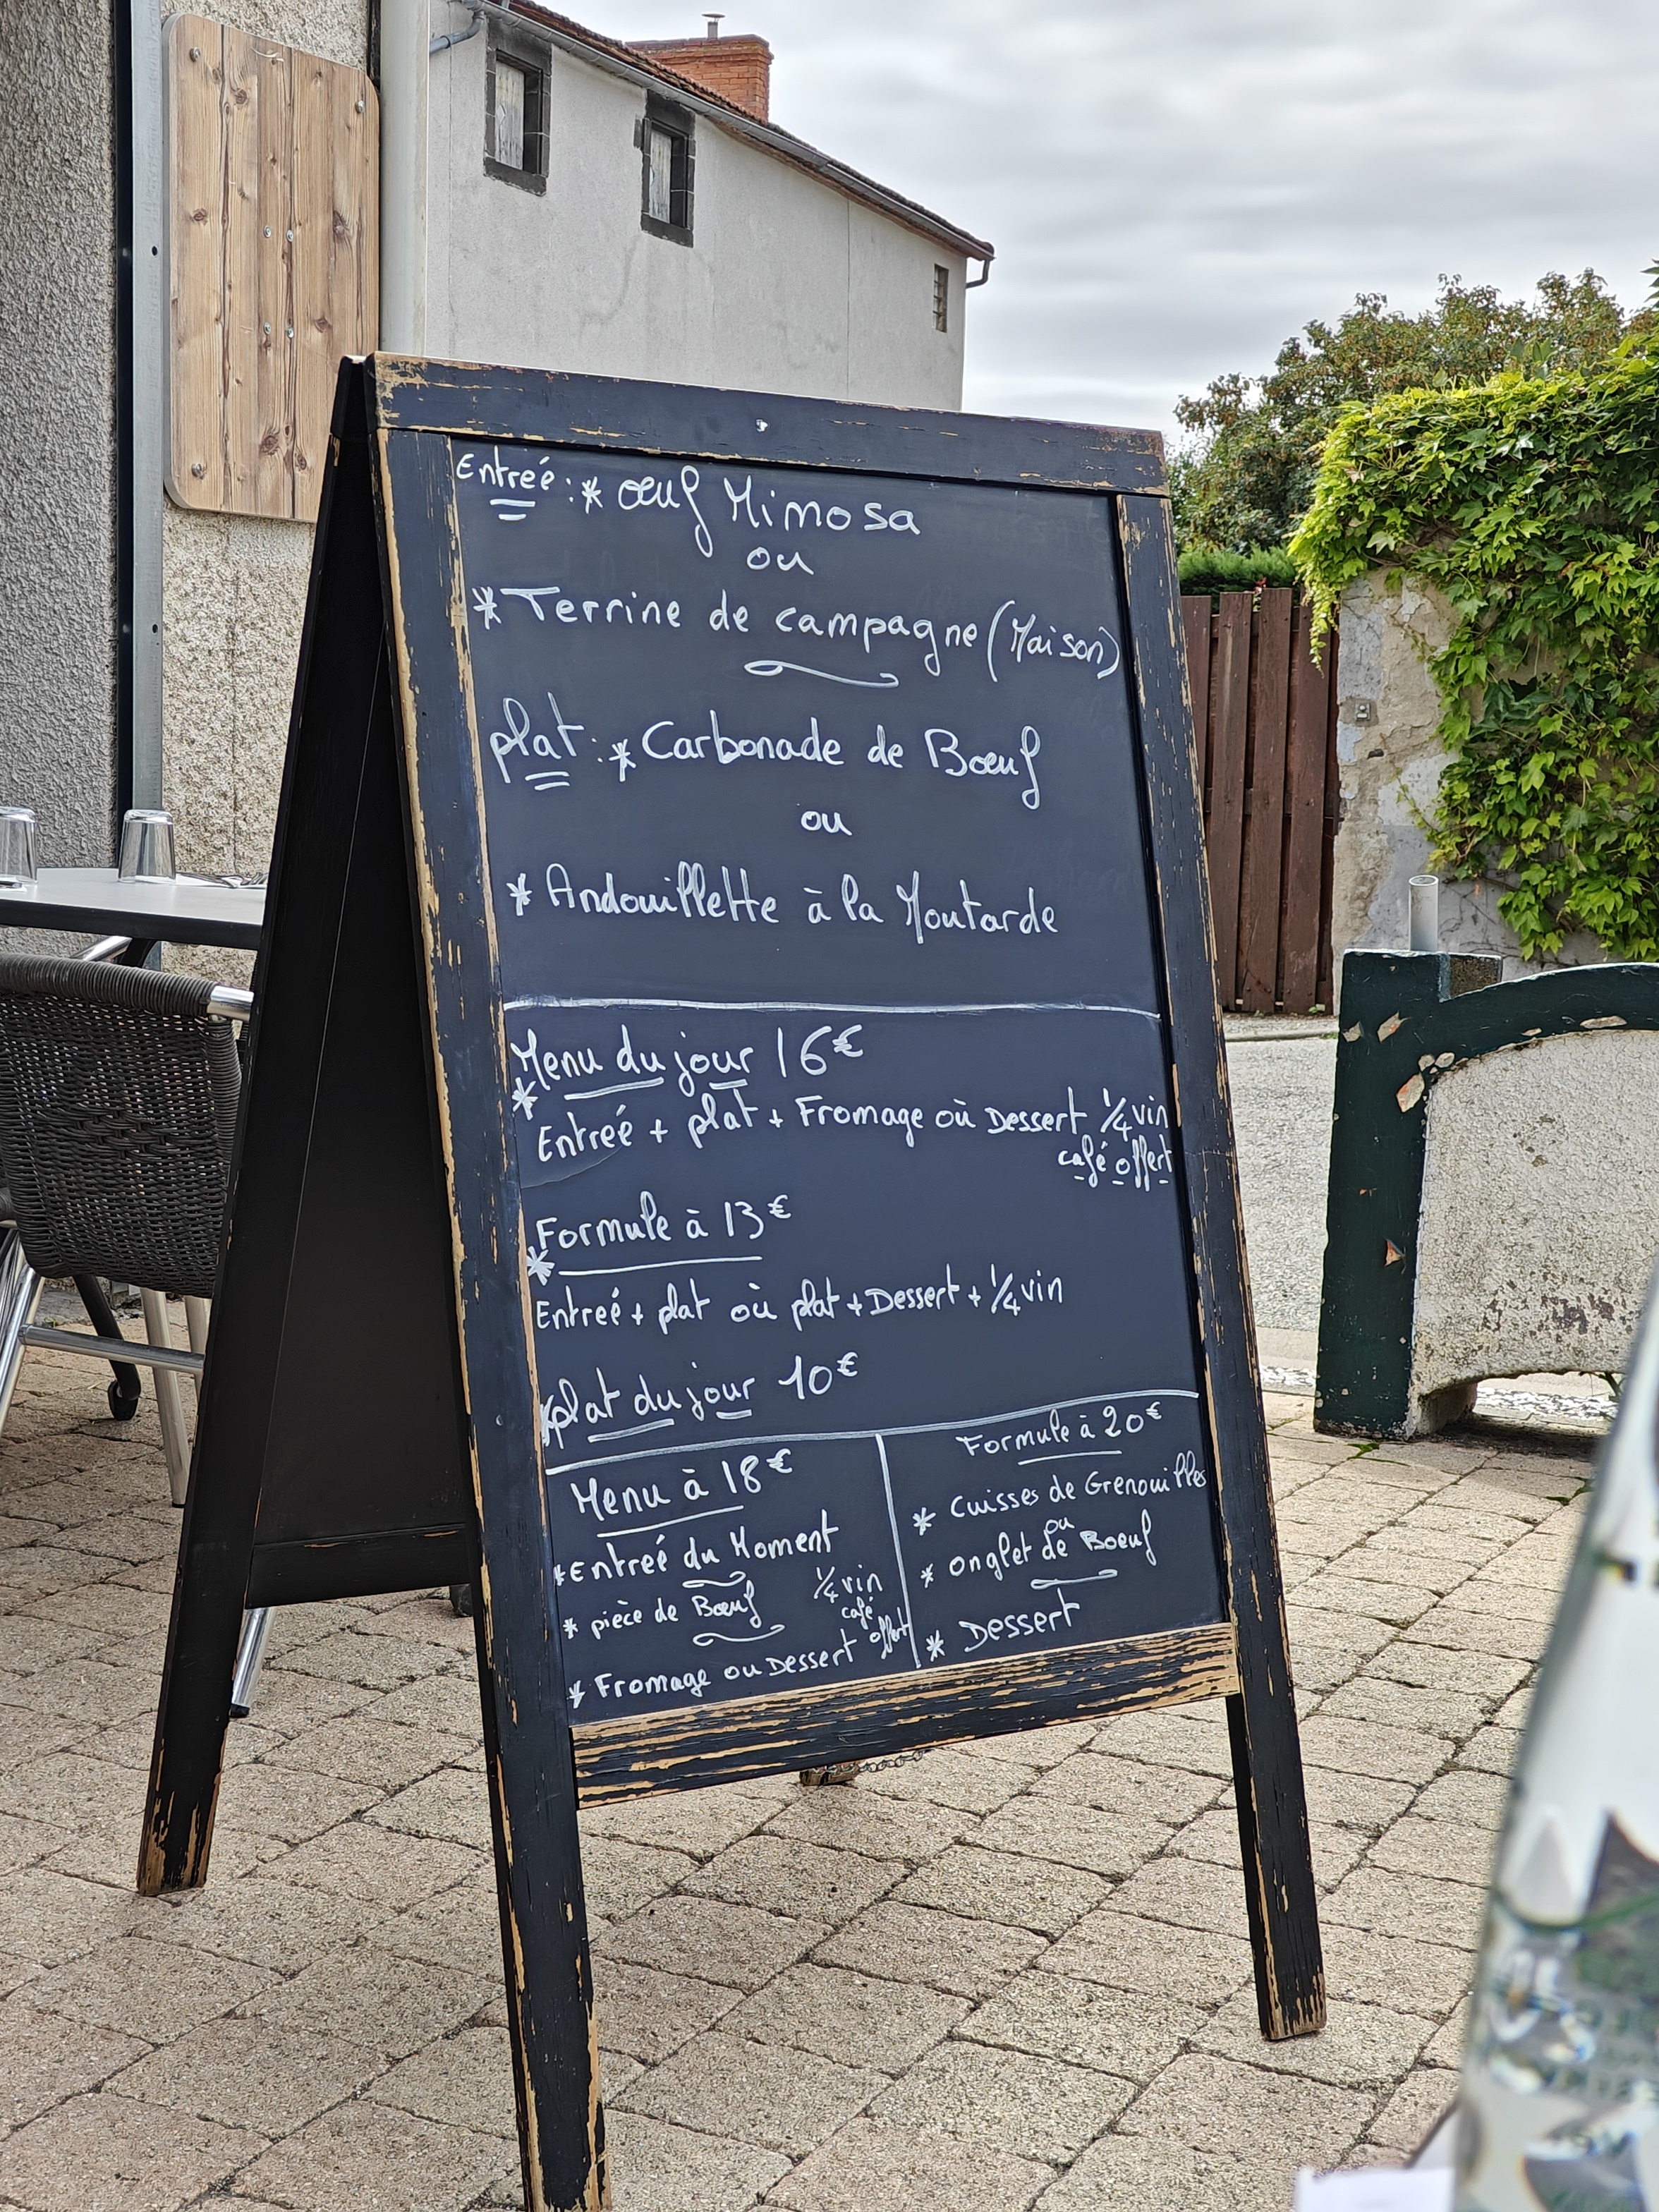 Entreé : * œuf Mimosa
ou
* Terrine de campagne (Maison)
plat : * Carbonade de Bœuf
ou
* Andouillette à la Moutarde
Menu du jour 16€
* Entreé + plat + Fromage où Dessert 1/4 vin
café offert
Formule à 13€
* Entreé + plat où plat + Dessert + 1/4 vin
* plat du jour 10€
Menu à 18€
* Entreé du Moment
* pièce de Bœuf
1/4 vin
café
offert
* Fromage ou Dessert
Formule à 20€
* Cuisses de Grenouilles
ou
* onglet de Boeuf
* Dessert